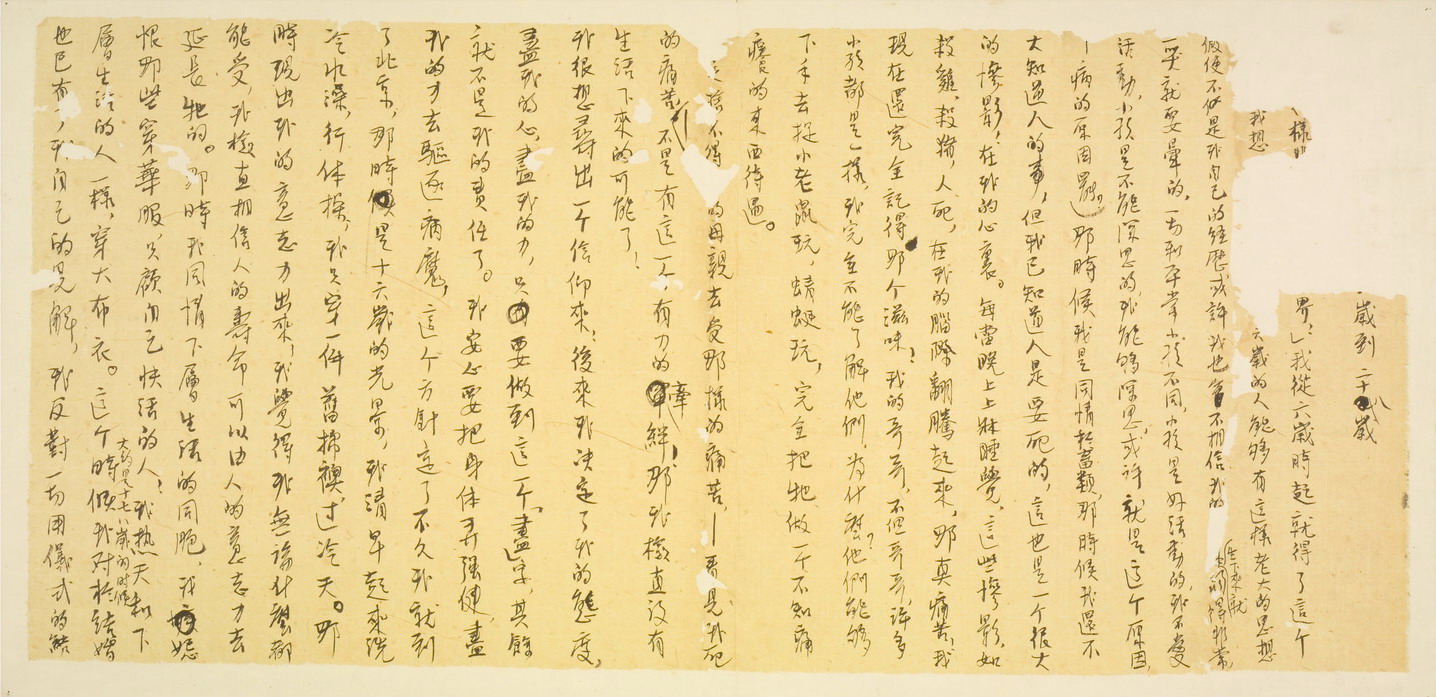 歲到二十八歲
樣的 界，」我從六歲時起就得了這个
我想 六歲的人能够有這樣老大的思想
假使不但是我自己的經歷或許我也會不相信我的
生下來就
一哭就要暈的，一切和平常小孩不同，小孩是好活動的，我不愛
活動，小孩是不能深思的我能够深思，或許就是這个原因，
—病的原因罷。那時候我是同情於畜類，那時候我還不
大知道人的事，但我已知道人是要死的，這也是一个很大
的慘影，在我的心裏。每當晚上上牀睡覺，這些慘影，如
殺雞，殺豬，人死，在我的腦際翻騰起來，那真痛苦，我
現在還完全記得那个滋味，我的哥哥，不但哥哥，許多
小孩都是一樣，我完全不能了解他們，為什麼他們能够
下手去捉小老鼠玩，蜻蜓玩，完全把牠做一个不知痛
癢的東西待遇。
不得 的母親去受那樣的痛苦，—看見我死
的痛苦，不是有這一个有力的牽絆，那我檢直沒有
生活下來的可能了！
我很想尋出一个信仰來，後來我決定了我的態度，
盡我的心，盡我的力，只要做到這一个盡字，其餘
就不是我的責任了。我安心要把身体弄强健，盡
我的力去驅逐病魔，這个方針定了不久我就到
了北京，那時是十六歲的光景，我清早起來洗
冷水澡，行体操，我只穿一件舊棉襖，过冷天。那
時現出我的意志力出來，我覺得我無論什麼都
能受，我檢直相信人的壽命可以由人的意志力去
延長牠的。那時我同情下層生活的同胞，我妬
恨那些穿華服，只顧自己快活的人，我熱天和下
層生活的人一樣，穿大布衣。這个時候我對於結婚
大約是十七八歲的時候
也已有了我自己的見解，我反對一切用儀式的結